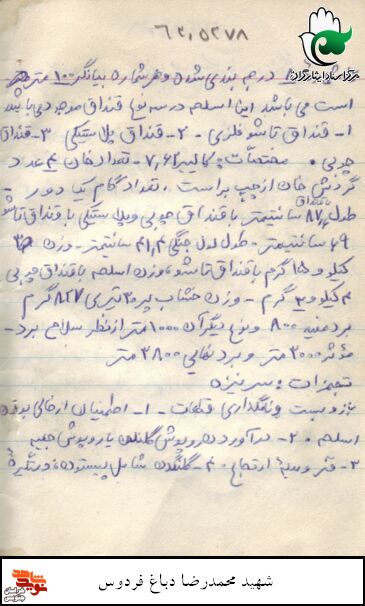 مرکز اسناد ایثارگران
۶۲,۵۲۷۸
درجه بندی شده و هر شماره بیانگر ۱۰۰ متر
است می باشد این اسلحه در سه نوع قنداق موجود می باشد
۱- قنداق تاشو فلزی - ۲- قنداق پلاستیکی ۳- قنداق
چوبی . مختصات : کالیبر ۷,۶۲ - تعداد خان ۴ عدد
گردش خان از چپ براست . تعداد گام یک دور -
طول ۸۷ سانتیمتر با قنداق چوبی و پلاستیکی با قنداق تاشو
۶۹ سانتیمتر - طول لول جنگی ۴۱,۴ سانتیمتر - وزن
کیلو و گرم با قنداق تاشو، وزن اسلحه با قنداق چوبی
۴ کیلو و گرم - وزن خشاب پر ۳۰ تیری ۸۲۷ گرم
برد مفید ۸۰۰ و نوع دیگر آن ۱۰۰۰ متر از نظر سلاح برد -
مؤثر ۳۰۰۰ متر و برد نهایی ۳۸۰۰ متر
تجهیزات : سرنیزه
باز و بست و نگهداری قطعات - ۱- اطمینان از خالی بودن
اسلحه . ۲- درآوردن روپوش گلنگدن یا روپوش جعبه
۳- فنر و میله ارتجاع . ۴- گلنگدن شامل پیستون، دستگیره
شهید محمدرضا دباغ فردوس
شاهد
نوید
خراسان جنوبی